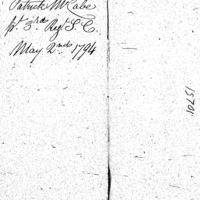 Patrick McCabe
pt. 3rd Regt S. C.
May 2nd 1794
15701